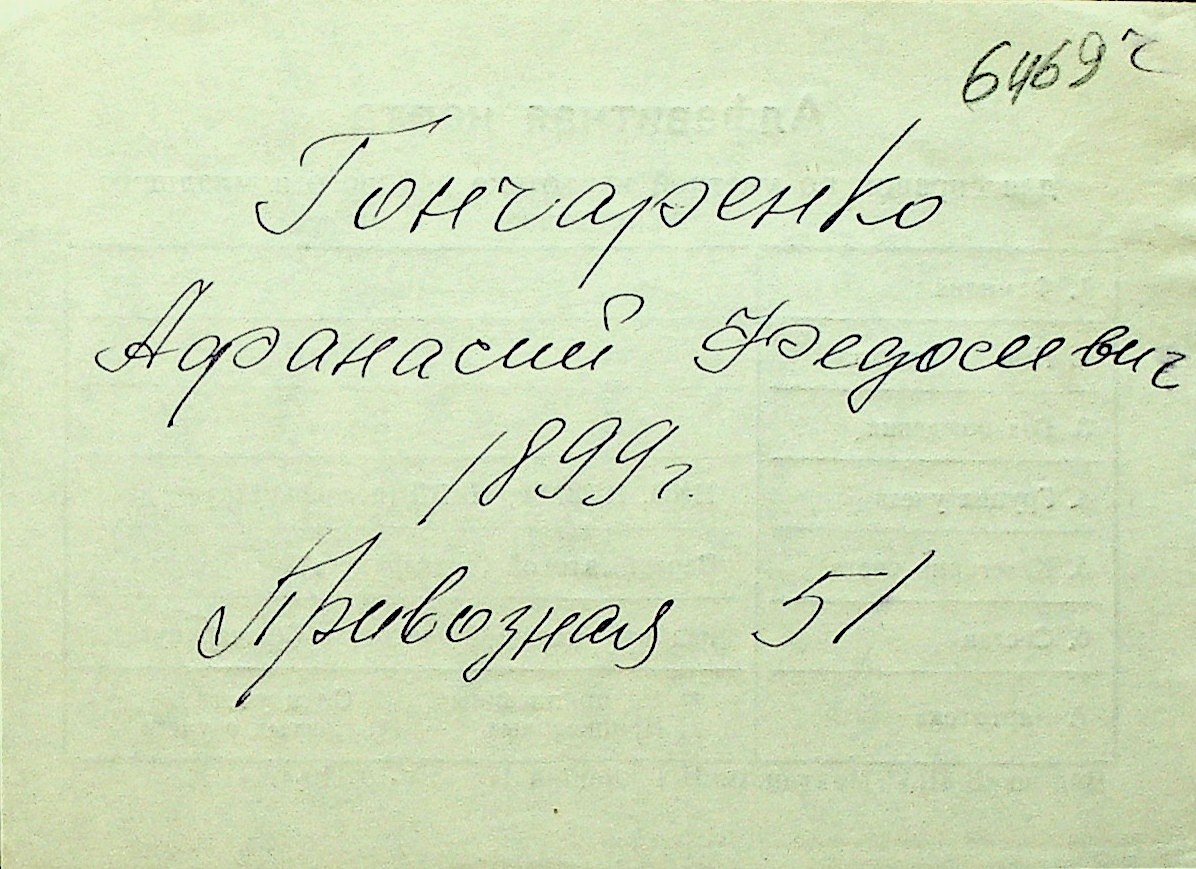 6469ч
Гончаренко
Афанасий Федосиевич
1899 г.
Привозная 51